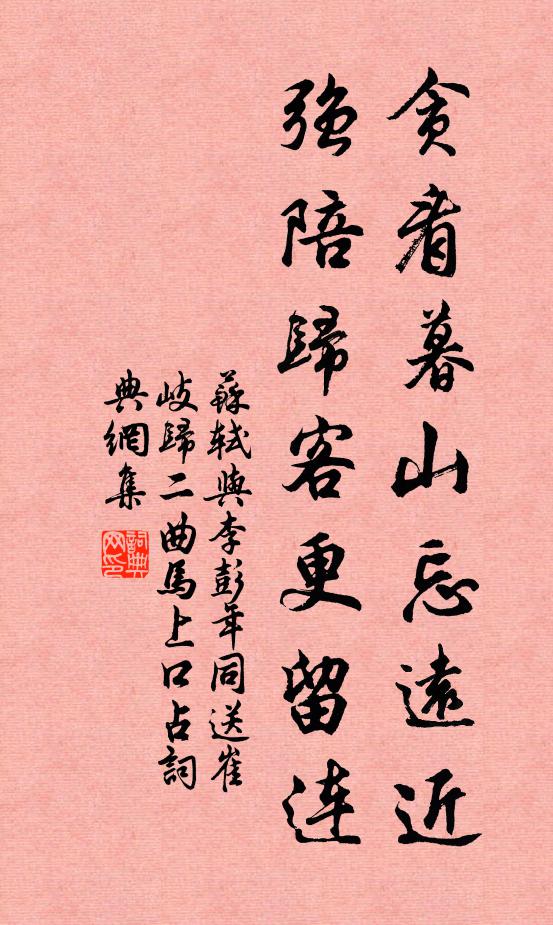 貪看暮山忘遠近
強陪歸客更留連
蘇軾與李彭年同送崔
岐歸二曲馬上口占詞
典網集
詞典
网印